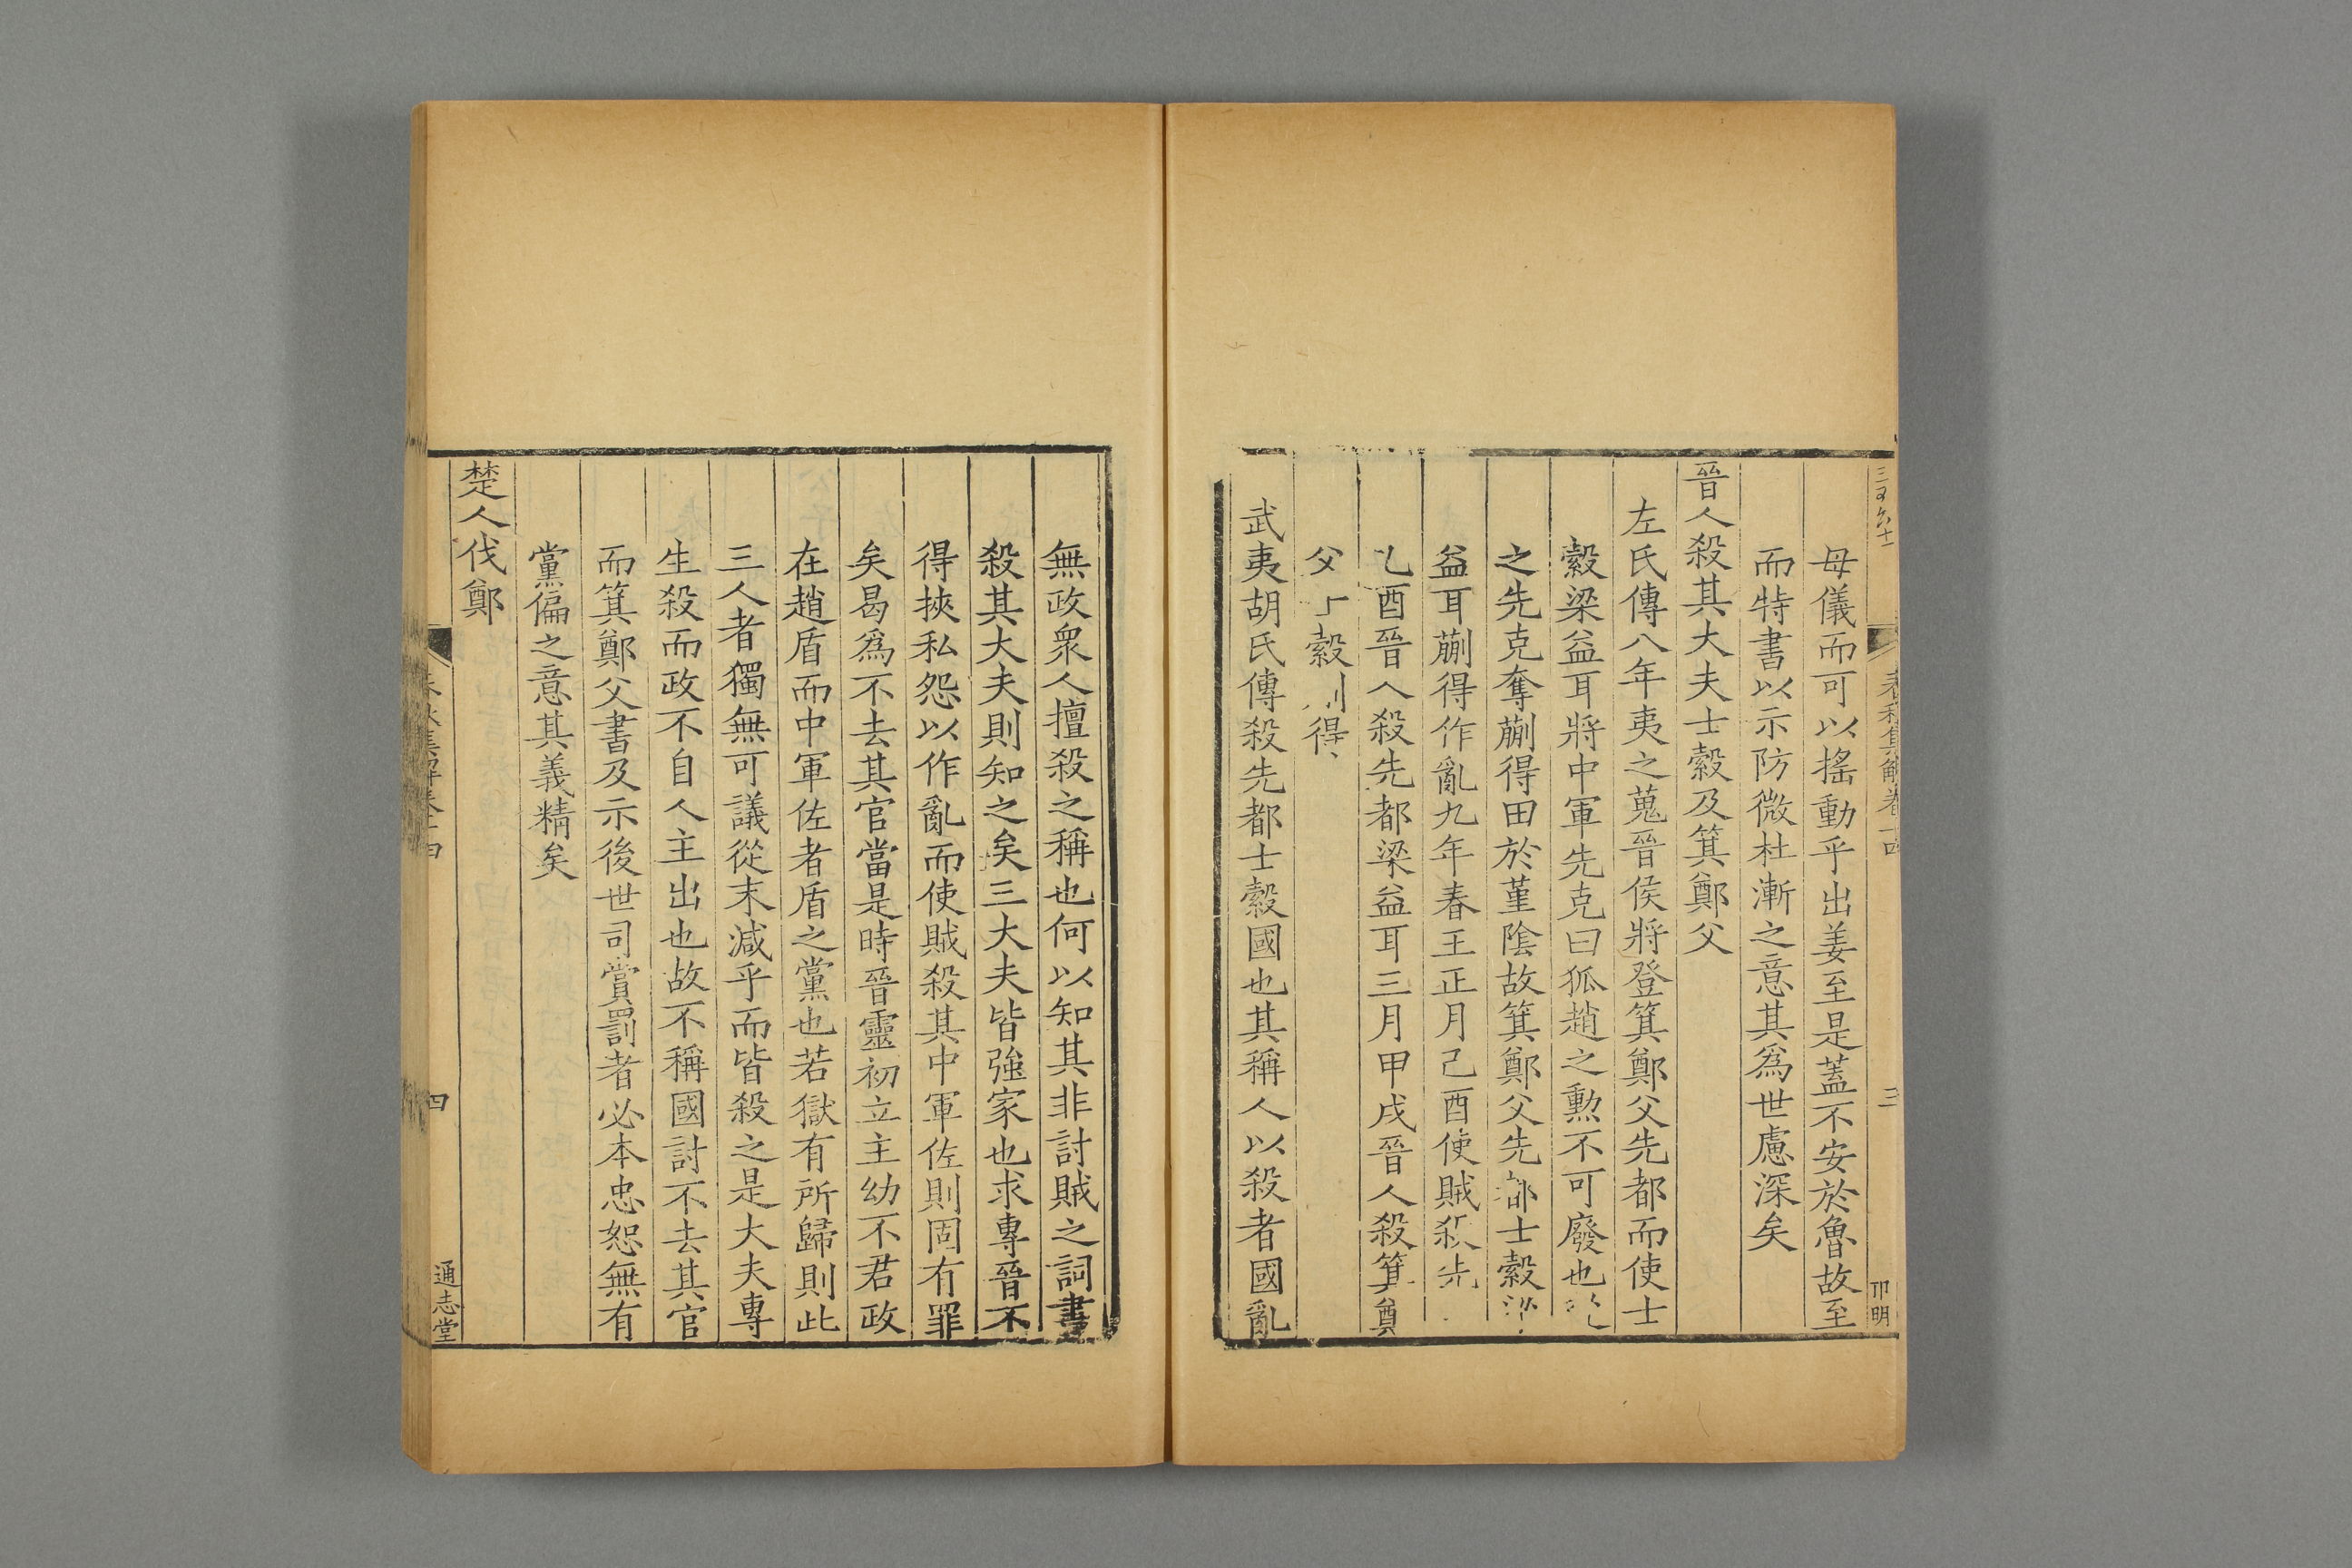 母儀而可以搖動乎出姜至是蓋不安於魯故至
而特書以示防微杜漸之意其為世慮深矣
晉人殺其大夫士縠及箕鄭父
左氏傳八年夷之蒐晉侯將登箕鄭父先都而使士
縠梁益耳將中軍先克曰狐趙之勲不可廢也
之先克奪蒯得田於堇陰故箕鄭父先都士縠
益耳蒯得作亂九年春王正月己酉使賊殺先
乙酉晉人殺先都梁益耳三月甲戌晉人殺箕鄭
父士縠蒯得
武夷胡氏傳殺先都士縠國也其稱人以殺者國亂
春秋集解卷十四
三
無政衆人擅殺之稱也何以知其非討賊之詞書
殺其大夫則知之矣三大夫皆強家也求專晉不
得挾私怨以作亂而使賊殺其中軍佐則固有罪
矣曷爲不去其官當是時晉靈初立主幼不君政
在趙盾而中軍佐者盾之黨也若獄有所歸則此
三人者獨無可議從末減乎而皆殺之是大夫專
生殺而政不自人主出也故不稱國討不去其官
而箕鄭父書及示後世司賞罰者必本忠恕無有
黨偏之意其義精矣
楚人伐鄭
春秋集解卷十四
四
通志堂